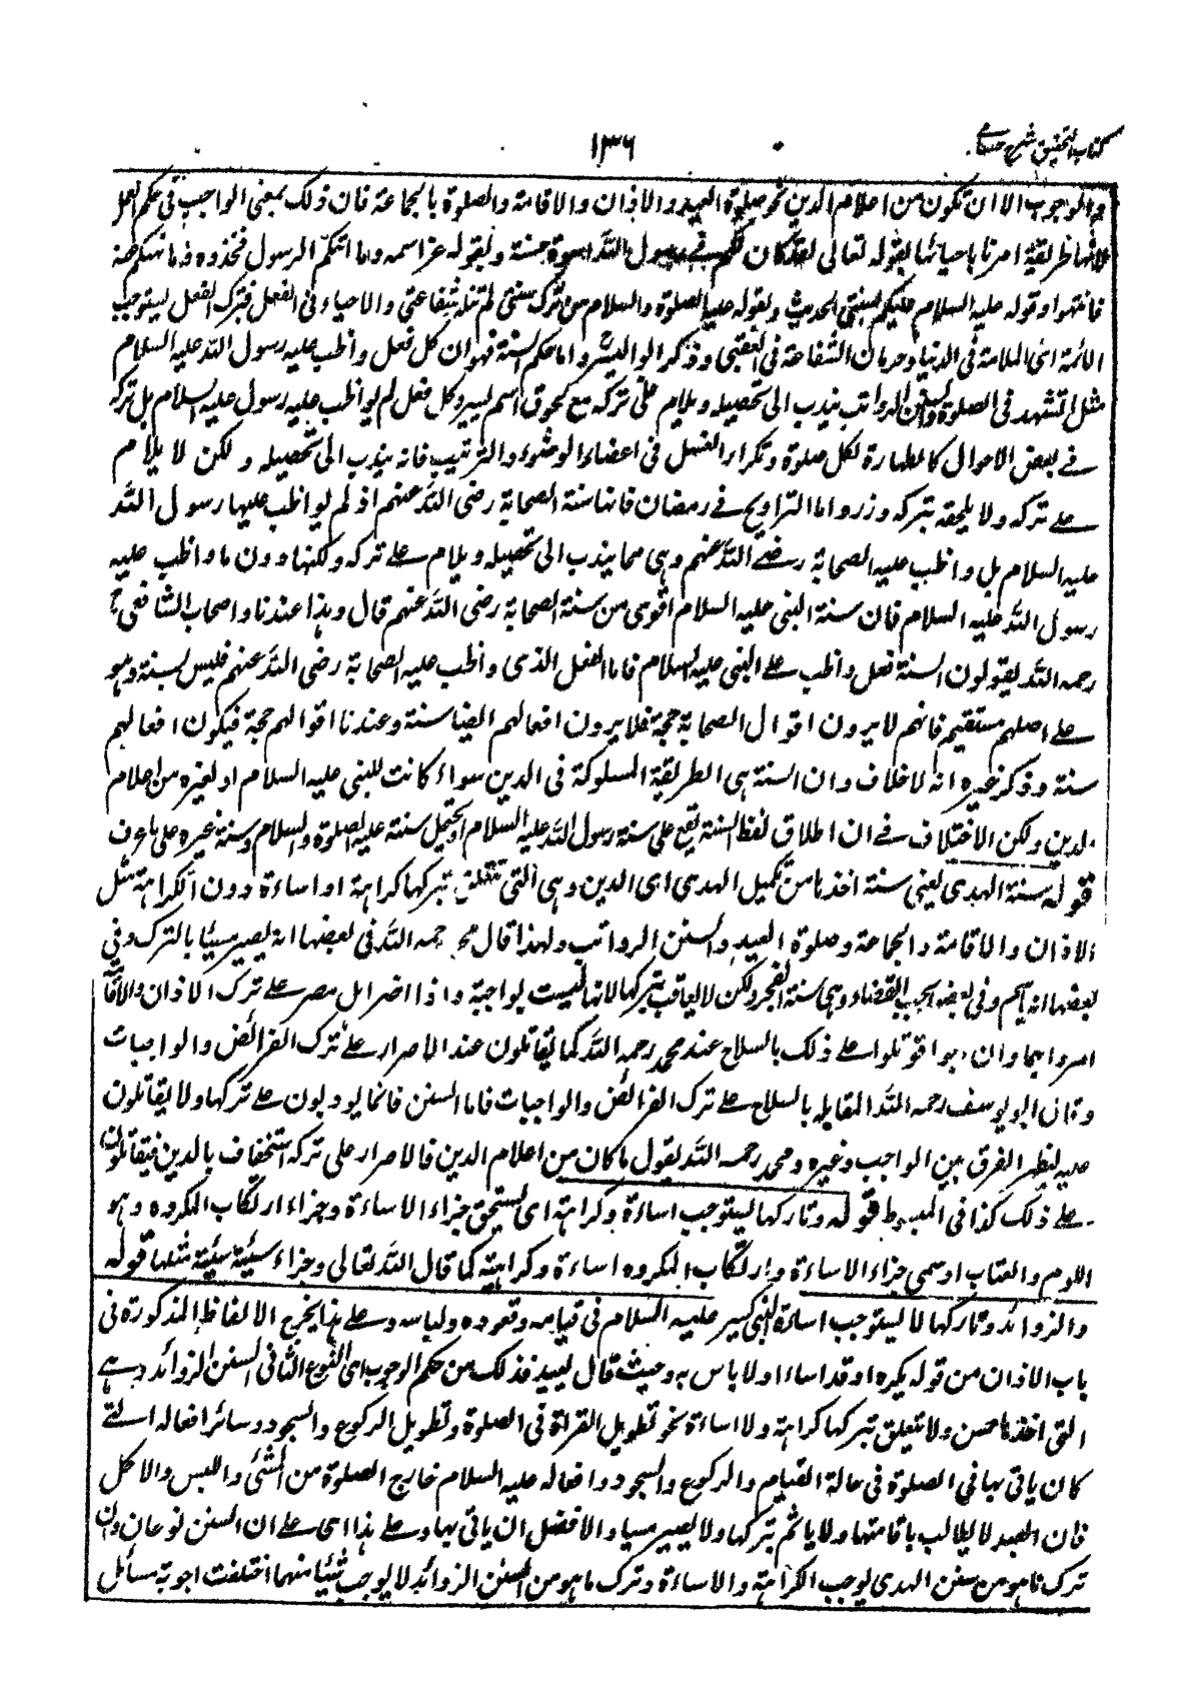 كتاب التحقيق شرح حسامي
١٣٦
والوجوب الا ان تكون من اعلام الدين نحو صلوة العيد والاذان والاقامة والصلوة بالجماعة فان ذلك بمعنى الواجب في حكم العمل
لانها طريقة امرنا باحيائها بقوله تعالى لقد كان لكم في رسول الله اسوة حسنة ولقوله عز اسمه وما اتٰكم الرسول فخذوه وما نهٰكم عنه
فانتهوا وقوله عليه السلام عليكم بسنتي الحديث ولقوله عليه الصلوة والسلام من ترك سنتي لم تنله شفاعتي والاحياء في الفعل فترك الفعل يستوجب
الائمة اى الملامة في الدنيا وحرمان الشفاعة في العقبى وذكر ابو اليسر واما حكم السنة فهو ان كل فعل واظب عليه رسول الله عليه السلام
مثل التشهد في الصلوة والسنن الرواتب يندب الى تحصيله ويلام على تركه مع لحوق اثم يسير وكل فعل لم يواظب عليه رسول عليه السلام بل تركه
في بعض الاحوال كالطهارة لكل صلوة وتكرار الغسل في اعضاء الوضوء والترتيب فانه يندب الى تحصيله ولكن لا يلام
على تركه ولا يلحقه بتركه وزر واما التراويح في رمضان فانها سنة الصحابة رضى الله عنهم اذ لم يواظب عليها رسول الله
عليه السلام بل واظب عليه الصحابة رضى الله عنهم وهى مما يندب الى تحصيله ويلام على تركه ولكنها دون ما واظب عليه
رسول الله عليه السلام فان سنة النبى عليه السلام اقوى من سنة الصحابة رضى الله عنهم قال وهذا عندنا واصحاب الشافعى ح
رحمه الله يقولون السنة فعل واظب على النبى عليه السلام فاما الفعل الذى واظب عليه الصحابة رضى الله عنهم فليس بسنة وهو
على اصلهم مستقيم فانهم لا يرون اقوال الصحابة حجة فلا يرون افعالهم ايضا سنة وعندنا اقوالهم حجة فيكون افعالهم
سنة وذكر غيره انه لا خلاف وان السنة هى الطريقة المسلوكة فى الدين سواء كانت للنبى عليه السلام او لغيره من اعلام
لدين ولكن الاختلاف في ان اطلاق لفظ السنة يقع على سنة رسول الله عليه السلام او يحتمل سنة عليه الصلوة والسلام وسنة غيره على ما عرف
قوله سنة الهدى يعنى سنة اخذها من تكميل الهدى اى الدين وهى التى يتعلق بتركها كراهة او اساءة دون الكراهة مثل
الاذان والاقامة والجماعة وصلوة العيد والسنن الرواتب ولهذا قال محمد رحمه الله فى بعضها انه يصير مسيئا بالترك وفى
بعضها انه ياثم وفى بعضها يجب القضاء وهى سنة الفجر ولكن لا يعاقب بتركها لانها ليست بواجبة واذا اصر اهل مصر على ترك الاذان والاقامة
امروا بهما وان ابوا قوتلوا على ذلك بالسلاح عند محمد رحمه الله كما يقاتلون عند الاصرار على ترك الفرائض والواجبات
وقال ابو يوسف رحمه الله المقابلة بالسلاح على ترك الفرائض والواجبات فاما السنن فانما يودبون على تركها ولا يقاتلون
عليه ليظهر الفرق بين الواجب وغيره ومحمد رحمه الله يقول ما كان من اعلام الدين فالاصرار على تركه استخفاف بالدين فيقاتلون
على ذلك كذا فى المبسوط قوله وتاركها يستوجب اساءة وكراهة اى يستحق جزاء الاساءة وجزاء ارتكاب المكروه وهو
اللوم والعتاب او سمى جزاء الاساءة وارتكاب المكروه اساءة وكراهية كما قال الله تعالى وجزاء سيئة سيئة مثلها قوله
والزوائد وتاركها لا يستوجب اساءة كسير النبى عليه السلام فى قيامه وقعوده ولباسه وعلى هذا يخرج الالفاظ المذكورة فى
باب الاذان من قوله يكره او قد اساء او لا باس به وحيث قال يعيد فذلك من حكم الوجوب اى النوع الثانى السنن الزوائد وهى
التى اخذها حسن ولا يتعلق بتركها كراهة ولا اساءة نحو تطويل القراءة فى الصلوة وتطويل الركوع والسجود وسائر افعاله التى
كان ياتى بها فى الصلوة فى حالة القيام والركوع والسجود وافعاله عليه السلام خارج الصلوة من المشى واللبس والاكل
فان العبد لا يطالب باقامتها ولا ياثم بتركها ولا يصير مسيئا والافضل ان ياتى بها وعلى هذا اى على ان السنن نوعان وان
ترك ما هو من سنن الهدى يوجب الكراهة والاساءة وترك ما هو من السنن الزوائد لا يوجب شيئا منهما اختلفت اجوبة مسائل